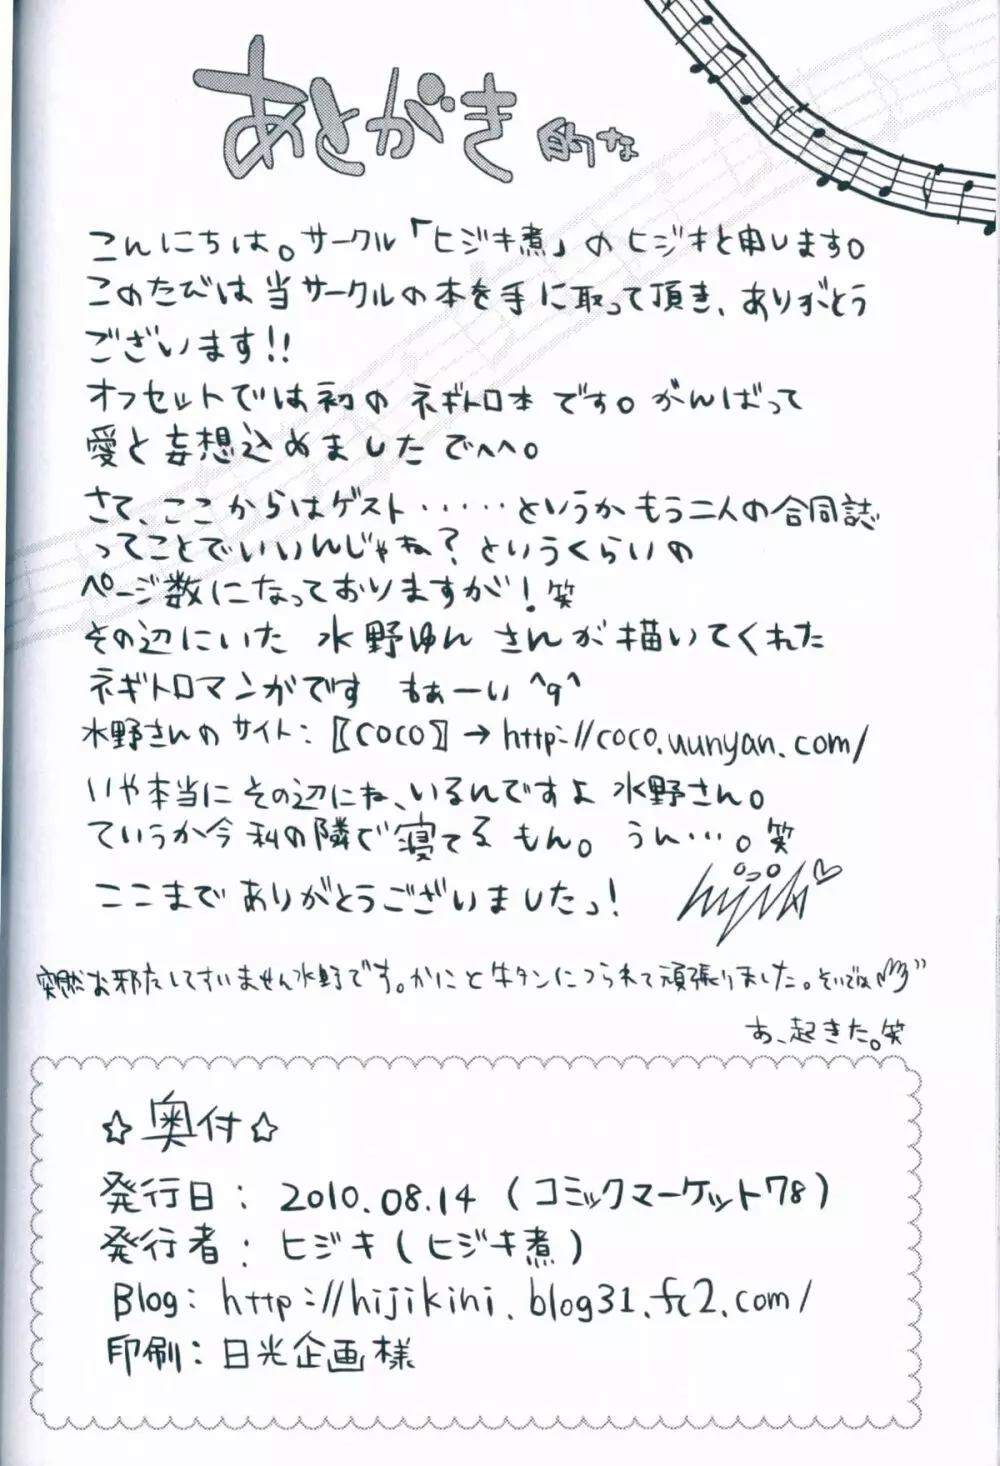 あとがき的な
こんにちは。サークル「ヒジキ煮」のヒジキと申します。
このたびは当サークルの本を手に取って頂き、ありがとう
ございます!!
オフセットでは初のネギトロ本です。がんばって
愛と妄想込めましたでへへ。
さて、ここからはゲスト・・・・・というかもう二人の合同誌
ってことでいいんじゃね?というくらいの
ページ数になっておりますが!笑
その辺にいた 水野ゆんさんが描いてくれた
ネギトロマンガです もぁーい ^q^
水野さんのサイト:〖coco〗→http://coco.uunyan.com/
いや本当にその辺にね、いるんですよ水野さん。
ていうか今私の隣で寝てるもん。うん・・・。笑
ここまでありがとうございましたっ!
hijiki♡
突然お邪魔してすいません水野です。かにと牛タンにつられて頑張りました。それでは
あ、起きた。笑
☆奥付☆
発行日:2010.08.14(コミックマーケット78)
発行者:ヒジキ(ヒジキ煮)
Blog:http://hijikini.blog31.fc2.com/
印刷:日光企画様